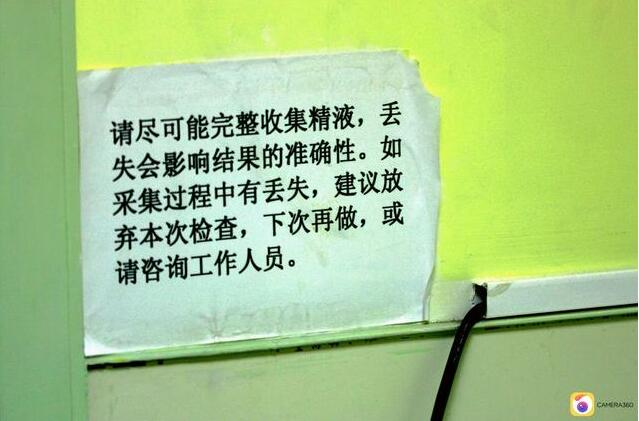 请尽可能完整收集精液，丢
失会影响结果的准确性。如
采集过程中有丢失，建议放
弃本次检查，下次再做，或
请咨询工作人员。
CAMERA360